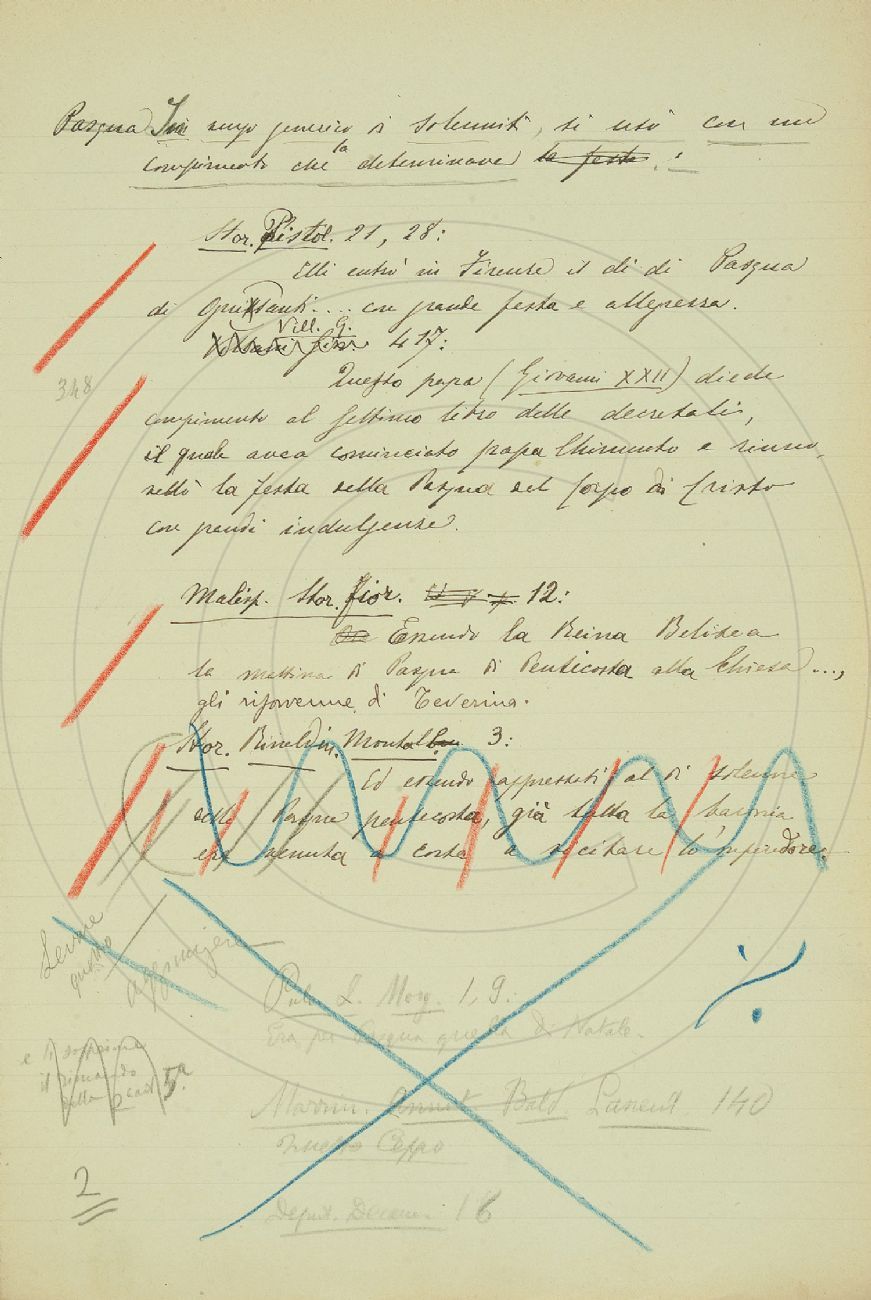 Pasqua In senso generico di solennità, si usò con un
compimento che la determinava la festa :
Stor. Pistol. 21, 28:
Elli entrò in Firenze il dì di Pasqua
di Ognissanti.... con grande festa e allegrezza.
Vill. G.
417:
348
Questo papa (Giovanni XXII) diede
compimento al settimo libro delle decretali,
il quale avea cominciato papa Chimento e rinno-
vellò la festa della Pasqua del Corpo di Cristo
con grandi indulgenze.
Malisp. Stor. Fior. 12:
Essendo la Reina Belisea
la mattina di Pasqua di Penticosta alla Chiesa...,
gli risovvenne di Teverina.
Stor. Rinaldin. Montalb. 3:
Ed essendo appressati al dì solenne
della Pasqua pentecosta, già tutta la baronia
era venuta a corte a vicitare lo 'mperadore.
Levare
questo
aggiungere
Pulc. L. Morg. 1, 9:
Era per Pasqua quella di Natale.
e si sopprime
il rimando
della 5ª.
Bald. Lament. 140
Ceppo
2
Deput. Decam. 16